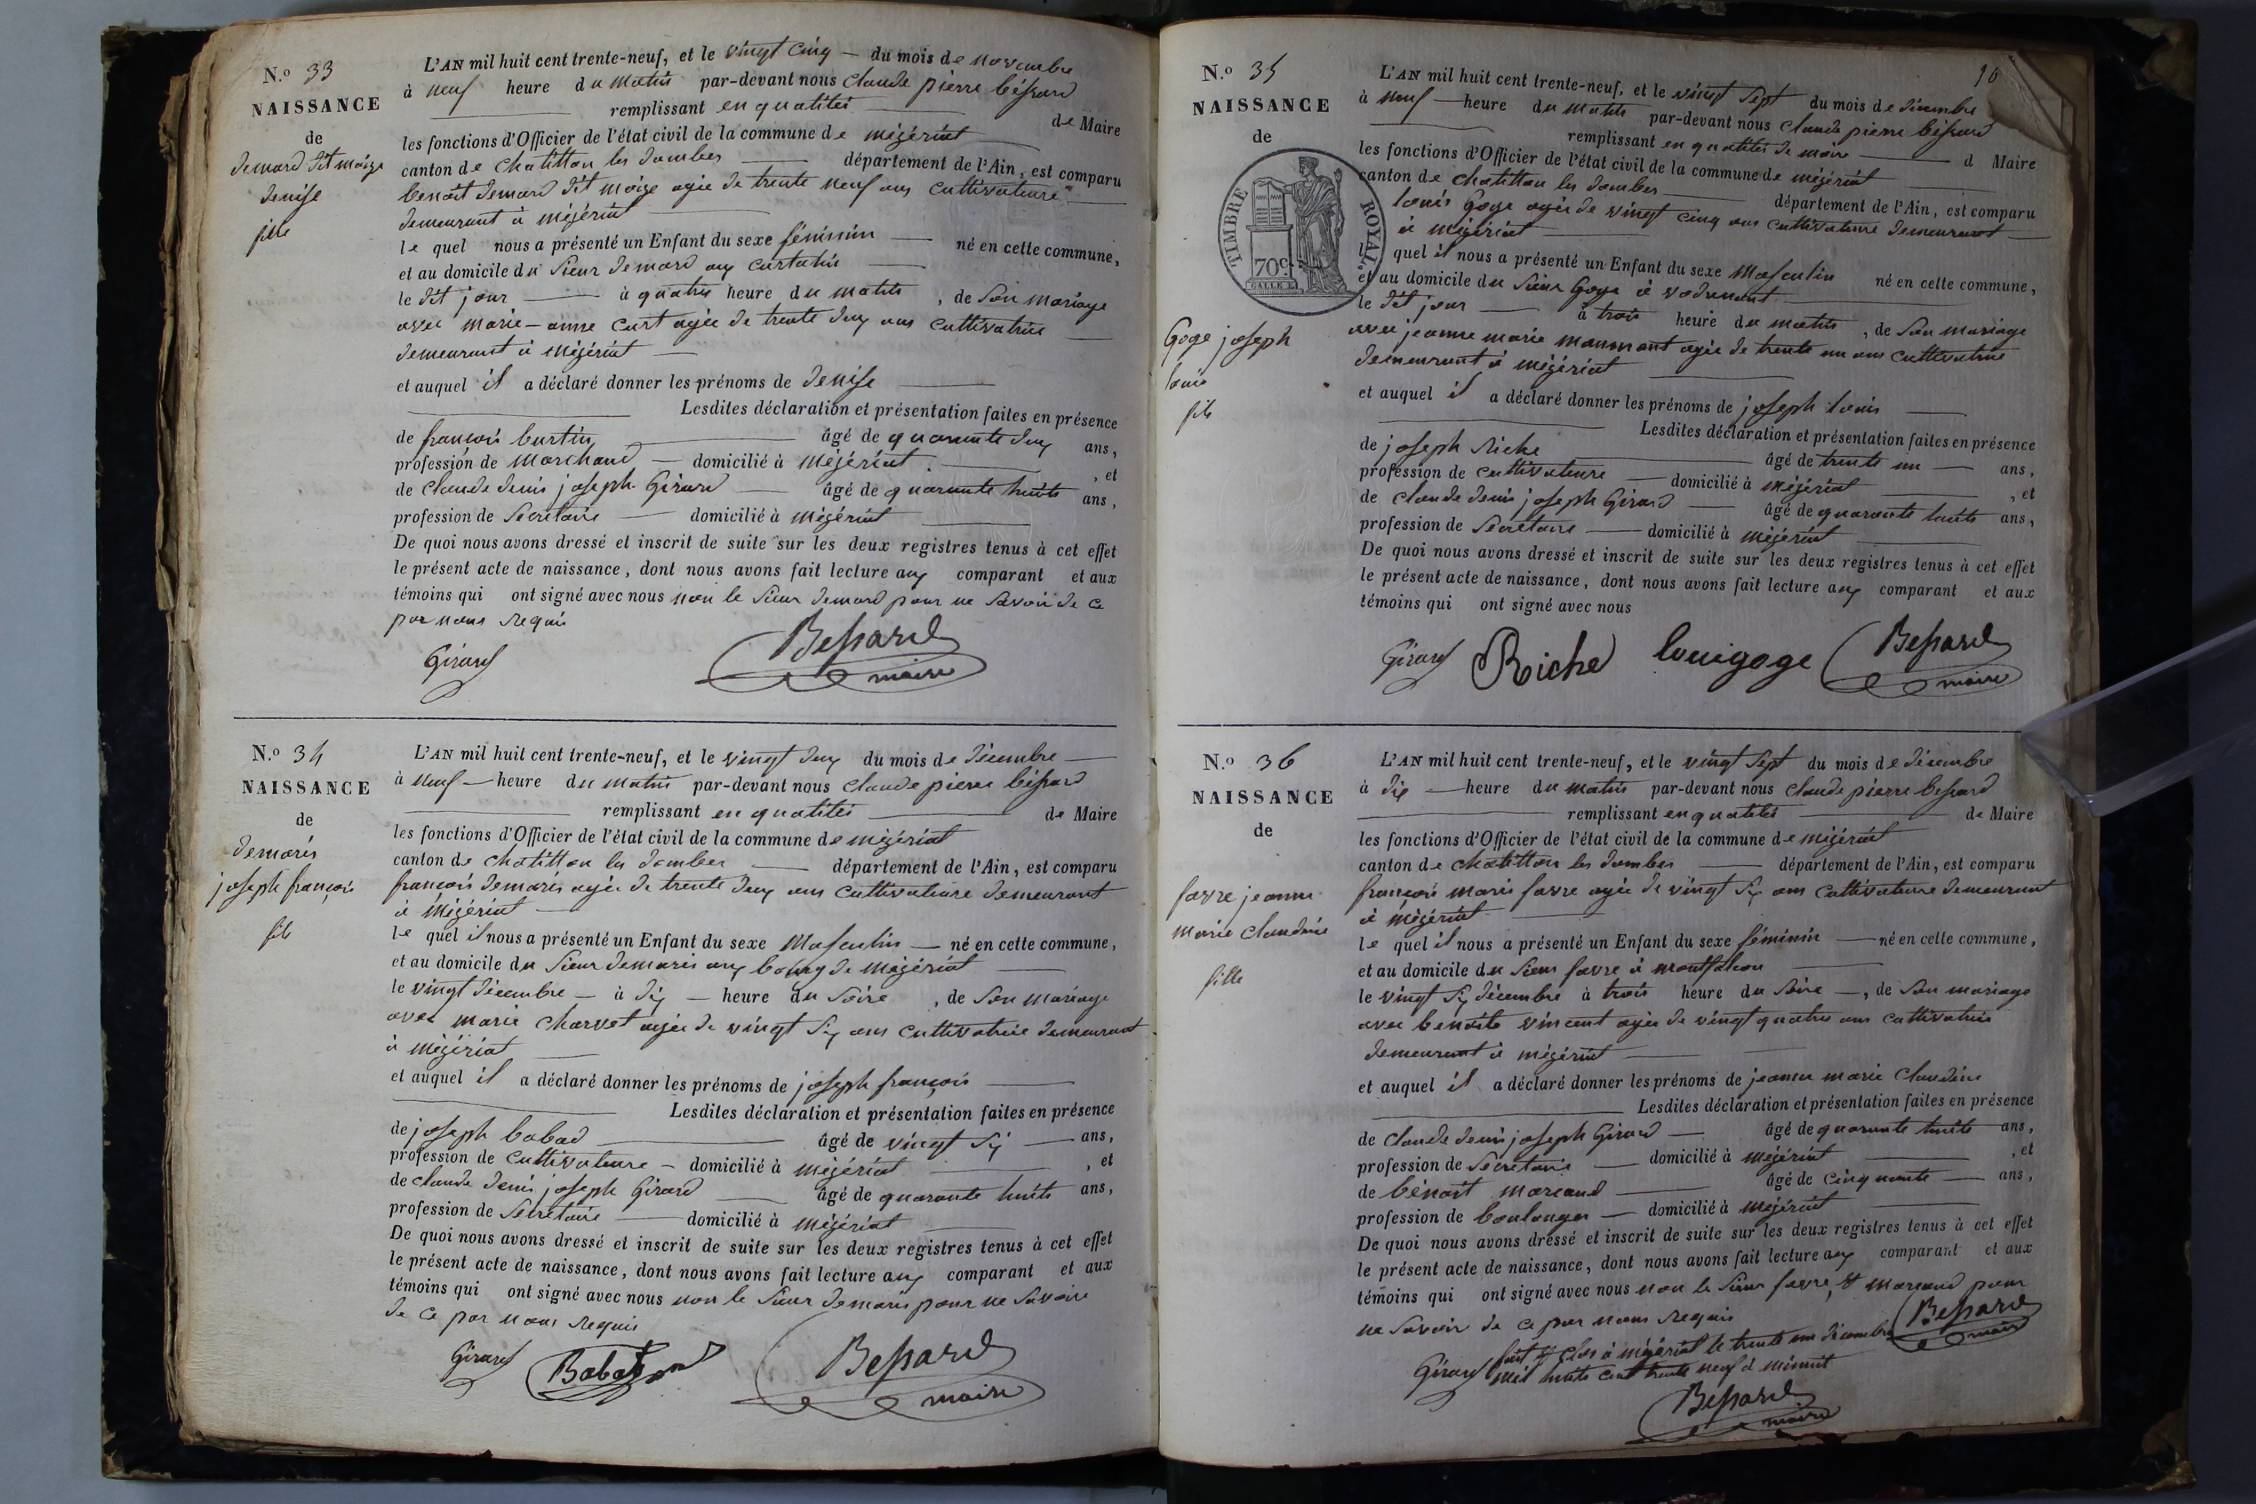 N.º 33
NAISSANCE
de
demard dit moige
denise
fille
L'AN mil huit cent trente-neuf, et le vingt cinq du mois de novembre
à neuf heure du matin par-devant nous claude pierre béssard
remplissant en qualités de Maire
les fonctions d'Officier de l'état civil de la commune de mézériat
canton de chatillon les dombes département de l'Ain, est comparu
benoit demard dit moige agée de trente neuf ans cultivateure
demeurant à mézériat
le quel nous a présenté un Enfant du sexe féminin né en cette commune,
et au domicile du sieur demard aux
le dit jour à quatre heure du matin, de son mariage
avec marie-anne curt agée de trente deux ans cultivatrice
demeurant à mézériat
et auquel il a déclaré donner les prénoms de denise
Lesdites déclaration et présentation faites en présence
de françois burtin âgé de quarante deux ans,
profession de marchand domicilié à mézériat, et
de claude denis joseph Girard âgé de quarante huite ans,
profession de secretaire domicilié à mézériat
De quoi nous avons dressé et inscrit de suite sur les deux registres tenus à cet effet
le présent acte de naissance, dont nous avons fait lecture aux comparant et aux
témoins qui ont signé avec nous non le sieur demard pour ne savoir de ce
par nous requis
Girard Bessard
maire
N.º 34
NAISSANCE
de
demaris
joseph françois
fils
L'AN mil huit cent trente-neuf, et le vingt deux du mois de décembre
à neuf heure du matin par-devant nous claude pierre béssard
remplissant en qualités de Maire
les fonctions d'Officier de l'état civil de la commune de mézériat
canton de chatillon les dombes département de l'Ain, est comparu
françois demaris agée de trente deux ans cultivateure demeurant
à mézériat
le quel il nous a présenté un Enfant du sexe masculin né en cette commune,
et au domicile du sieur demaris aux bourg de mézériat
le vingt décembre à dix heure du soire, de son mariage
avec marie charvet agée de vingt six ans cultivatrice demeurant
à mézériat
et auquel il a déclaré donner les prénoms de joseph françois
Lesdites déclaration et présentation faites en présence
de joseph babad âgé de vingt six ans,
profession de cultivateure domicilié à mézériat, et
de claude denis joseph Girard âgé de quarante huite ans,
profession de secretaire domicilié à mézériat
De quoi nous avons dressé et inscrit de suite sur les deux registres tenus à cet effet
le présent acte de naissance, dont nous avons fait lecture aux comparant et aux
témoins qui ont signé avec nous non le sieur demaris pour ne savoir
de ce par nous requis
Girard Babad Bessard
maire
N.º 35
NAISSANCE
de
TIMBRE ROYAL.
70c.
Goge joseph
louis
fils
L'AN mil huit cent trente-neuf, et le vingt sept du mois de décembre
à neuf heure du matin par-devant nous claude pierre béssard
remplissant en qualités de maire d Maire
les fonctions d'Officier de l'état civil de la commune de mézériat
canton de chatillon les dombes département de l'Ain, est comparu
louis Goge agée de vingt cinq ans cultivateure demeurant
à mézériat
l quel il nous a présenté un Enfant du sexe masculin né en cette commune,
et au domicile du sieur Goge à
le dit jour à trois heure du matin, de son mariage
avec jeanne marie agée de trente un ans cultivatrice
demeurant à mézériat
et auquel il a déclaré donner les prénoms de joseph louis
Lesdites déclaration et présentation faites en présence
de joseph riche âgé de trente un ans,
profession de cultivateure domicilié à mézériat, et
de claude denis joseph Girard âgé de quarante huite ans,
profession de secretaire domicilié à mézériat
De quoi nous avons dressé et inscrit de suite sur les deux registres tenus à cet effet
le présent acte de naissance, dont nous avons fait lecture aux comparant et aux
témoins qui ont signé avec nous
Girard Riche louigoge Bessard
maire
N.º 36
NAISSANCE
de
favre jeanne
marie claudine
fille
L'AN mil huit cent trente-neuf, et le vingt sept du mois de décembre
à dix heure du matin par-devant nous claude pierre bessard
remplissant en qualités de Maire
les fonctions d'Officier de l'état civil de la commune de mézériat
canton de chatillon les dombes département de l'Ain, est comparu
françois marie favre agée de vingt six ans cultivateure demeurant
à mézériat
le quel il nous a présenté un Enfant du sexe féminin né en cette commune,
et au domicile du sieur favre à montfalcon
le vingt six décembre à trois heure du soire, de son mariage
avec benoite vincent agée de vingt quatre ans cultivatrice
demeurant à mézériat
et auquel il a déclaré donner les prénoms de jeanne marie claudine
Lesdites déclaration et présentation faites en présence
de claude denis joseph Girard âgé de quarante huite ans,
profession de secretaire domicilié à mézériat, et
de bénoit morcaud âgé de cinquante ans,
profession de boulanger domicilié à mézériat
De quoi nous avons dressé et inscrit de suite sur les deux registres tenus à cet effet
le présent acte de naissance, dont nous avons fait lecture aux comparant et aux
témoins qui ont signé avec nous non le sieur favre, et morcaud pour
ne savoir de ce par nous requis Bessard
maire
fait et clos à mézériat le trente un décembre
Girard mil huite cent trente neuf à minuit
Bessard
maire